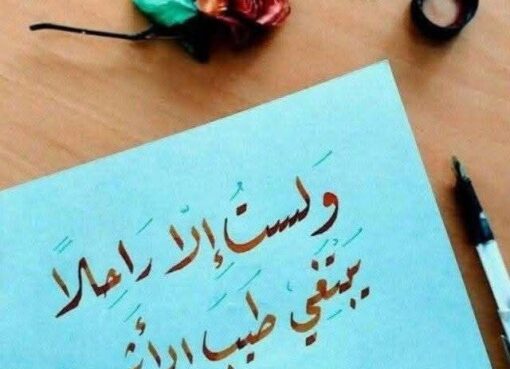 وَلستُ إلّا رَاحِلًا
يَبْتَغِي طيبَ الأثَر